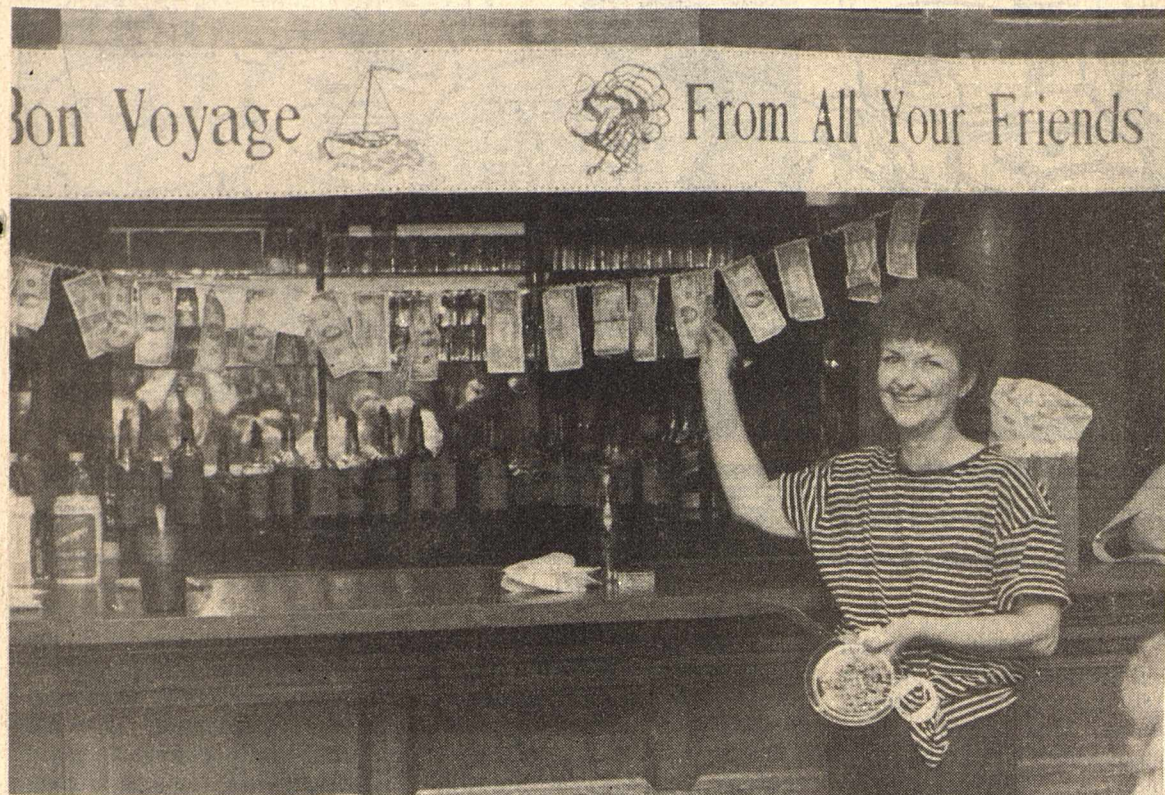 Bon Voyage From All Your Friends